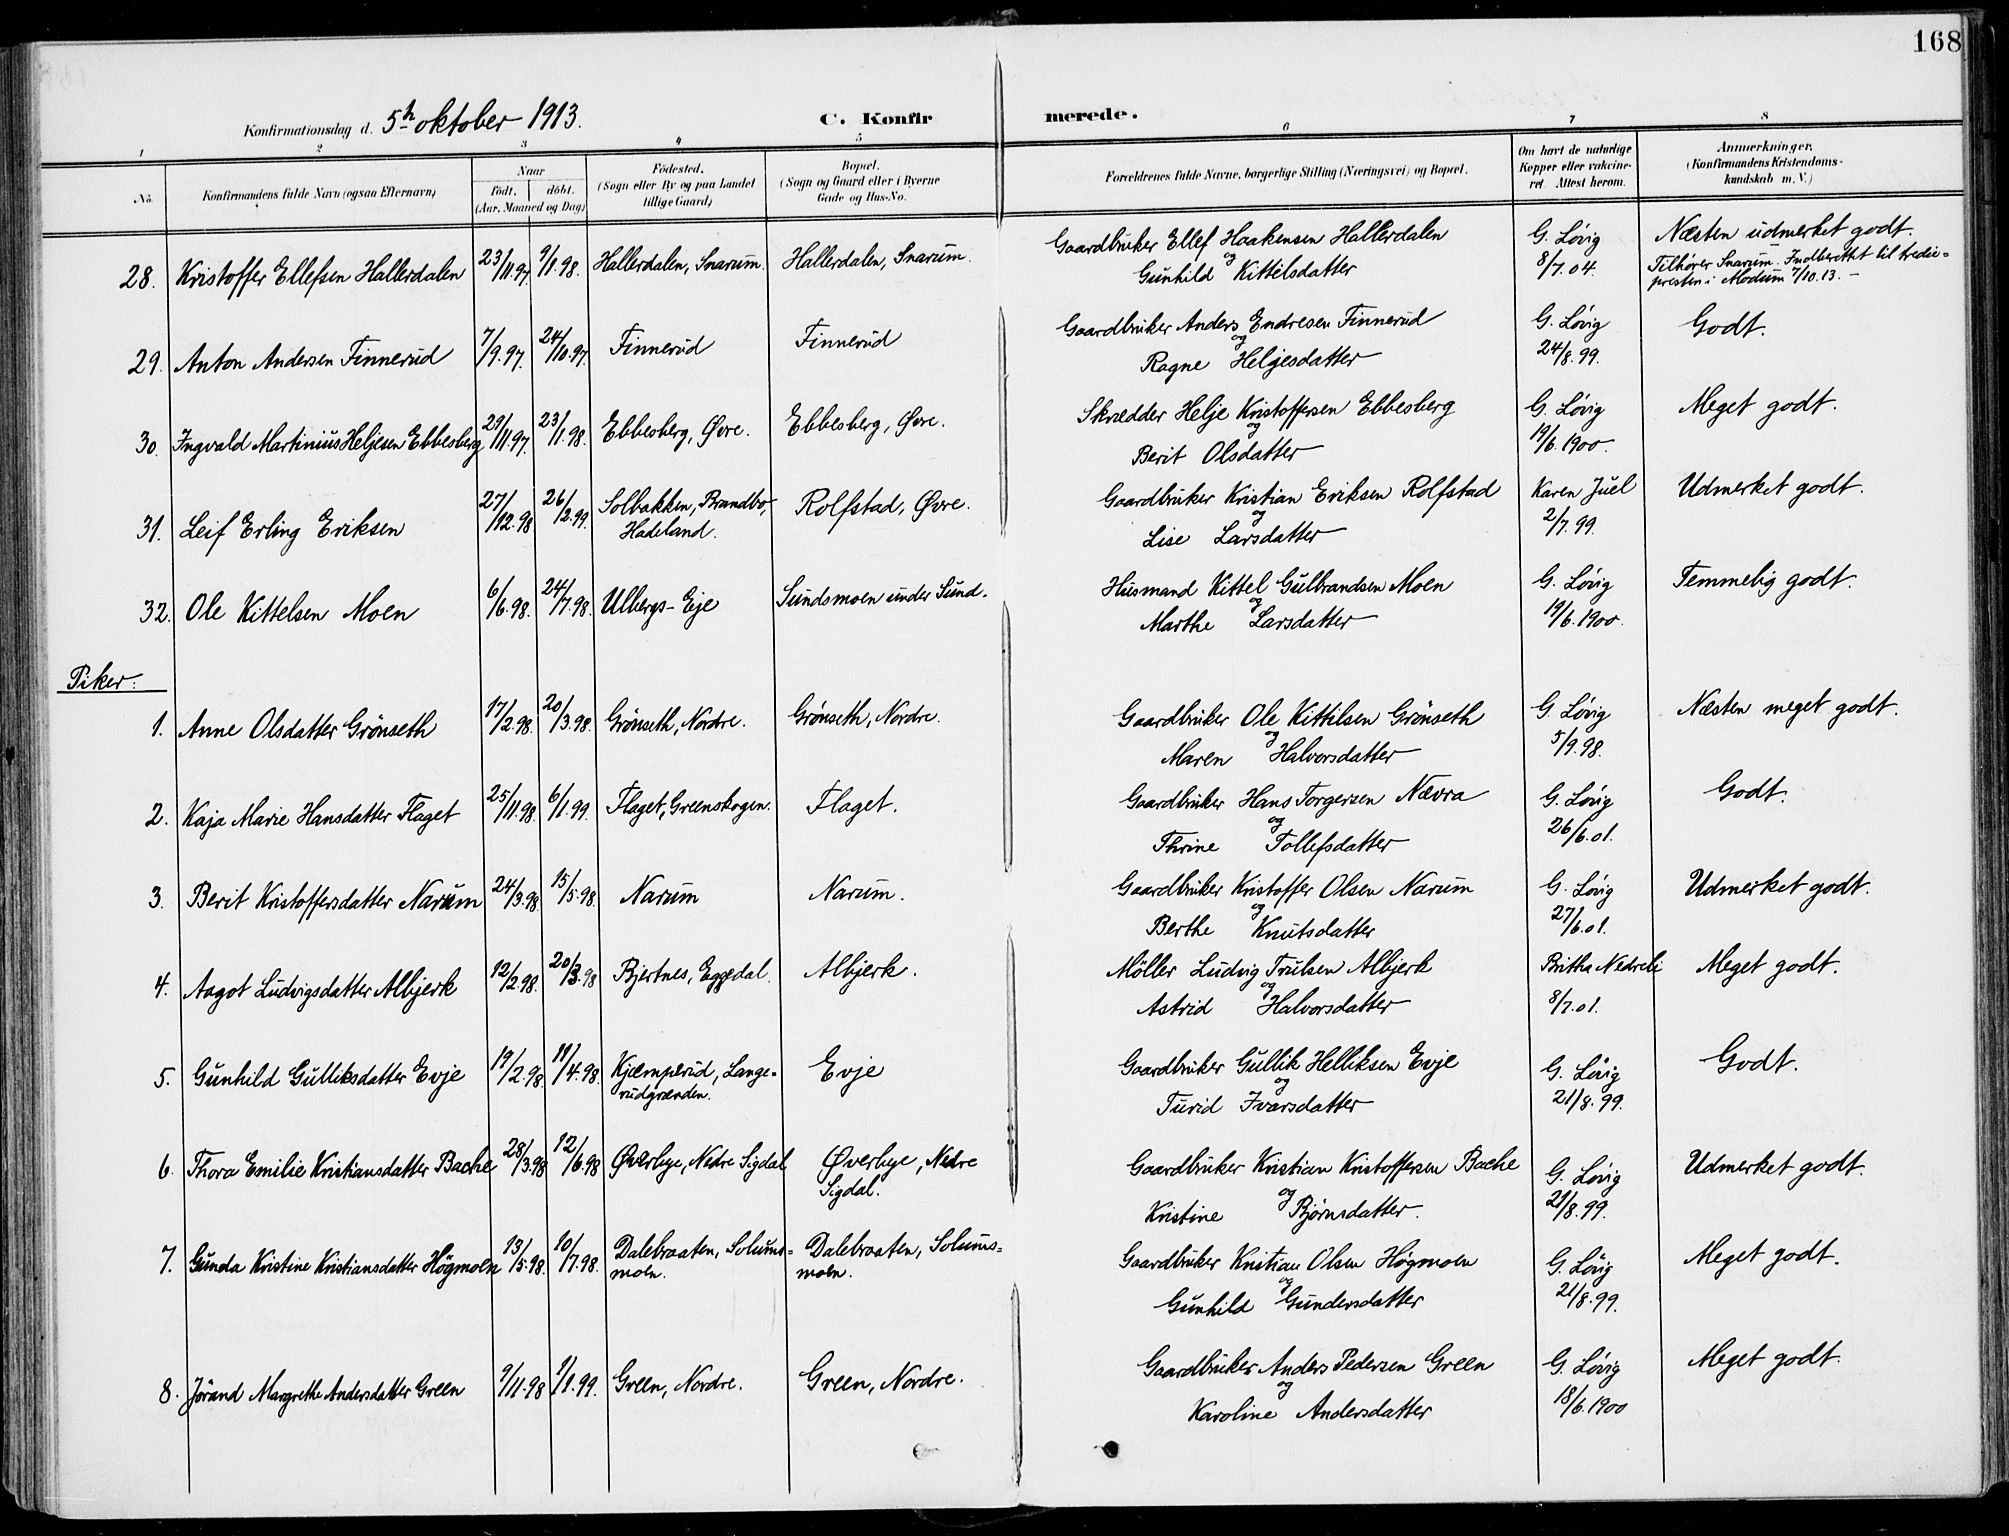 168
Konfirmationsdag d. 5h oktober 1913.
C. Konfir merede.
1 2 3 4 5 6 7 8
No.
Konfirmandens fulde Navn (ogsaa Efternavn)
Naar
født. døbt.
(Aar, Maaned og Dag)
Fødested.
(Sogn eller By og paa Landet
tillige Gaard)
Bopæl.
(Sogn og Gaard eller i Byerne
Gade og Hus-No.
Forældrenes fulde Navne, borgerlige Stilling (Næringsvei) og Bopæl.
Om havt de naturlige
Kopper eller vakcine-
ret. Attest herom.
Anmærkninger.
(Konfirmandens Kristendoms-
kundskab m. V.)
28. Kristoffer Ellefsen Hallerdalen 23/11.97 9/1.98. Hallerdalen, Snarum. Hallerdalen, Snarum. Gaardbruker Ellef Haakensen Hallerdalen G. Lövig Næsten udmerket godt.
og Gunhild Kittelsdatter 8/7.04. Tilhører Snarum. Indberettet til tredie-
presten i Modum 7/10.13. –
29. Anton Andersen Finnerud 7/9.97. 24/10.97. Finnerud Finnerud Gaardbruker Anders Endresen Finnerud G. Lövig Godt.
og Ragne Helgesdatter 24/8.99.
30. Ingvald Martinius Heljesen Ebbesberg 29/11.97. 23/1.98. Ebbesberg, Øvre. Ebbesberg, Øvre. Skrædder Helje Kristoffersen Ebbesberg G. Lövig Meget godt.
og Berit Olsdatter 19/6.1900.
31. Leif Erling Eriksen 27/12.98 26/2.99. Solbakken, Brandbo, Rolfstad, Øvre. Gaardbruker Kristian Eriksen Rolfstad Karen Juel Udmerket godt.
Hadeland. og Lise Larsdatter 2/7.99.
32. Ole Kittelsen Moen 6/6.98. 24/7.98. Ulbergs-Eje Sundsmoen under Sund. Husmand Kittel Gulbrandsen Moen G. Lövig Temmelig godt.
og Marthe Larsdatter 19/6.1900.
Piker:
1. Anne Olsdatter Grönseth 17/2.98. 20/3.98. Grönseth, Nordre. Grönseth, Nordre. Gaardbruker Ole Kittilsen Grönseth G. Lövig Næsten meget godt.
og Maren Halvorsdatter 5/9.98.
2. Kaja Marie Hansdatter Flaget 25/11.98. 6/1.99. Flaget, Greenskogen. Flaget. Gaardbruker Hans Torgersen Nævra G. Lövig Godt.
og Thrine Tollefsdatter 26/6.01.
3. Berit Kristoffersdatter Narum 24/3.98. 15/5.98. Narum Narum. Gaardbruker Kristoffer Olsen Narum G. Lövig Udmerket godt.
og Berthe Knutsdatter 27/6.01.
4. Aagot Ludvigsdatter Albjerk 12/2.98. 20/3.98 Bjertnes, Eggedal. Albjerk. Möller Ludvig Trulsen Albjerk Britha Nedrebö Meget godt.
og Astrid Halvorsdatter 8/7.01.
5. Gunhild Gulliksdatter Evje 19/2.98. 11/4.98. Kjæmperud, Lange- Evje Gaardbruker Gullik Helliksen Evje G. Lövig Godt.
rudgrænden. og Turid Ivarsdatter 21/8.99.
6. Thora Emilie Kristiansdatter Bache 28/3.98 12/6.98 Øverbye, Nedre Sigdal Øverbye, Nedre Gaardbruker Kristian Kristoffersen Bache G. Lövig Udmerket godt.
Sigdal. og Kristine Bjørnsdatter. 21/8.99.
7. Gunda Kristine Kristiansdatter Högmoen 13/5.98. 10/7.98. Dalebraaten, Solums- Dalebraaten, Solums- Gaardbruker Kristian Olsen Högmoen G. Lövig Meget godt.
moen. moen. og Gunhild Gundersdatter 21/8.99.
8. Jörand Margrethe Andersdatter Green 9/11.98 1/1.99. Green, Nordre. Green, Nordre. Gaardbruker Anders Pedersen Green G. Lövig Meget godt.
og Karoline Andersdatter 18/6.1900